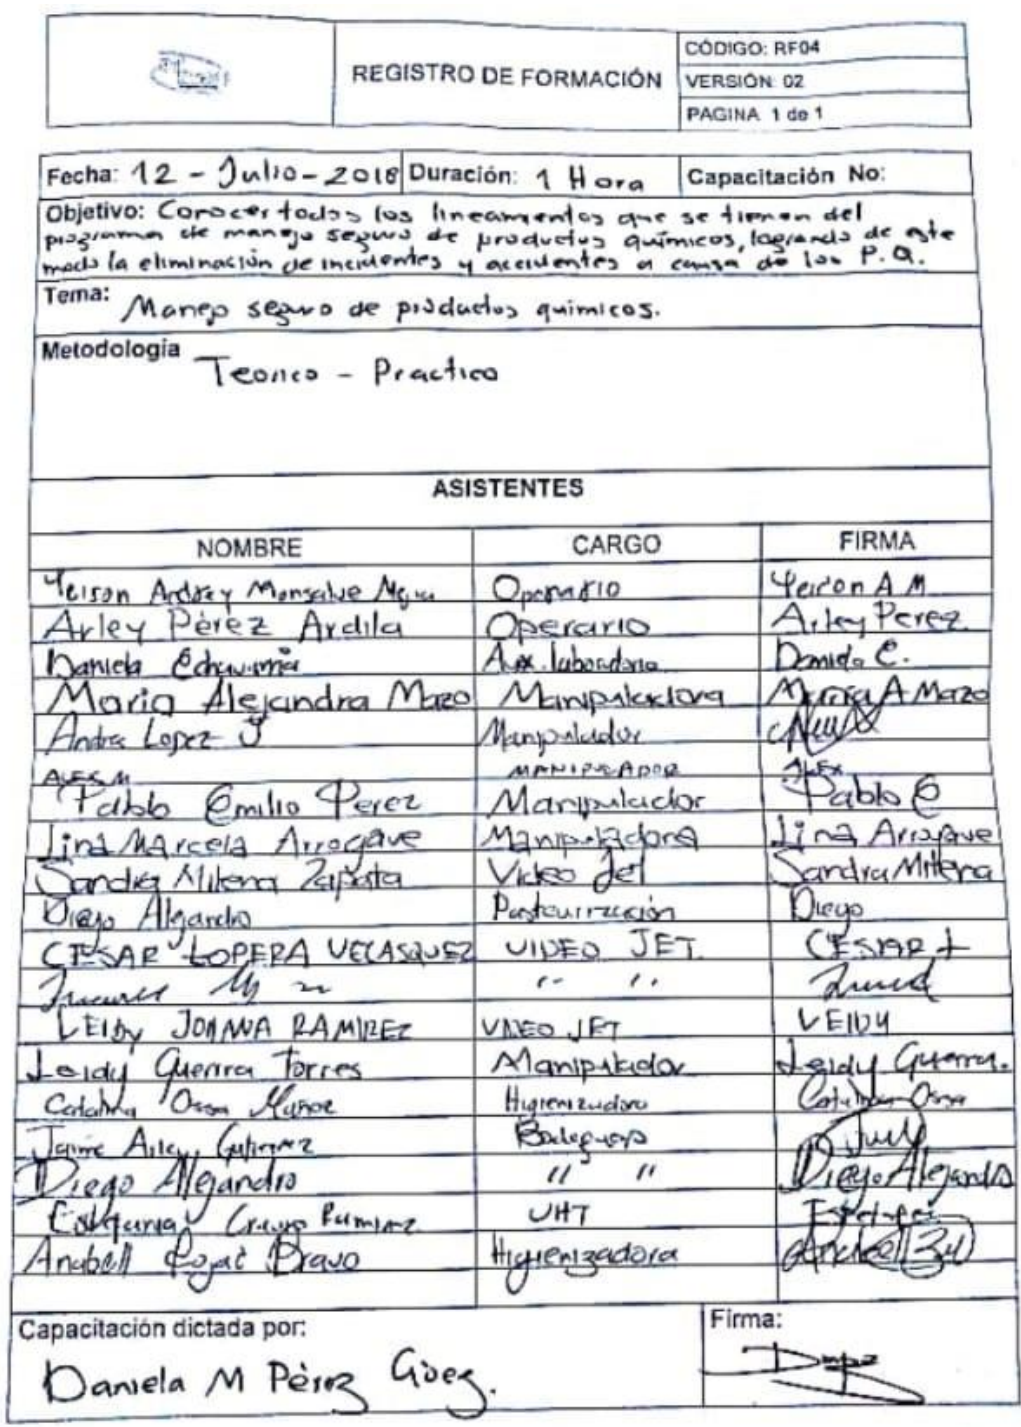 REGISTRO DE FORMACIÓN
CÓDIGO: RF04
VERSIÓN: 02
PAGINA 1 de 1
Fecha: 12 - Julio - 2018 Duración: 1 Hora Capacitación No:
Objetivo: Conocer todos los lineamientos que se tienen del
programa de manejo seguro de productos químicos, logrando de este
modo la eliminación de incidentes y accidentes a causa de los P.Q.
Tema: Manejo seguro de productos quimicos.
Metodología Teorico - Practico
ASISTENTES
NOMBRE CARGO FIRMA
Yeison Andrey Monsalve Operario Yeison A M
Arley Pérez Ardila Operario Arley Perez
Daniela Echavarria Aux. laboratorio Daniela E.
Maria Alejandra Mazo Manipuladora Maria A Mazo
Andres Lopez J Manipulador
ALEX M MANIPULADOR ALEX
Pablo Emilio Perez Manipulador Pablo E
Lina Marcela Arrogave Manipuladora Lina Arrogave
Sandra Milena Zapata Video Jet Sandra Milena
Diego Alejandro Pasteurización Diego
CESAR LOPERA VELASQUEZ VIDEO JET. CESAR L
" "
LEIDY JOANNA RAMIREZ VIDEO JET LEIDY
Leidy Guerra Torres Manipulador Leidy Guerra.
Catalina Ossa Muñoz Higienizadora Catalina Ossa
Jaime Arley Gutierrez Bodeguero
Diego Alejandro " " Diego Alejandro
Ramirez UHT
Anabell Rojas Bravo Higienizadora
Capacitación dictada por: Firma:
Daniela M Pérez Góez.